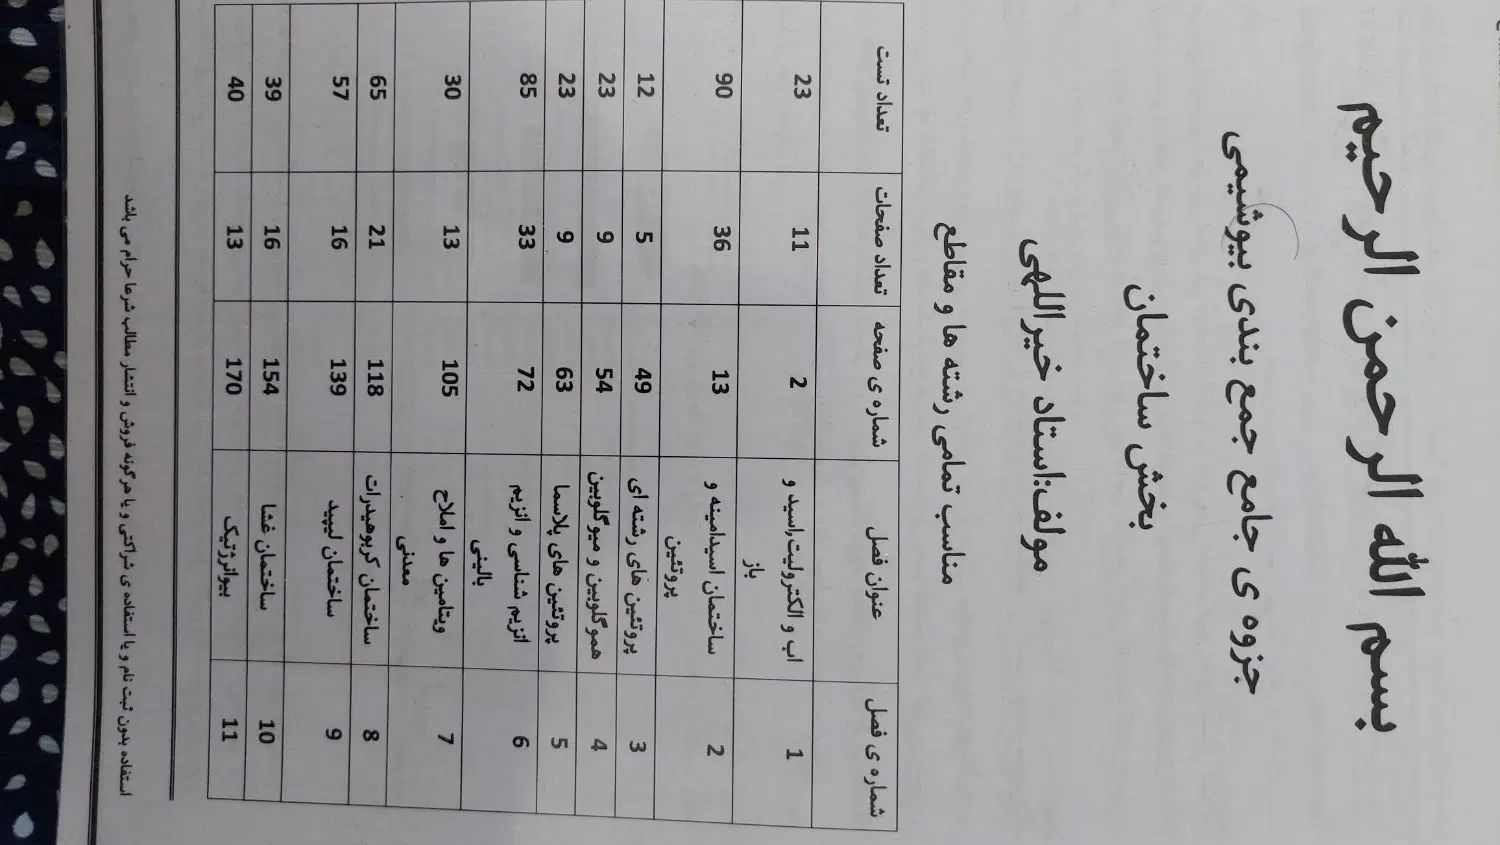 بسم الله الرحمن الرحیم
جزوه ی جامع جمع بندی بیوشیمی
بخش ساختمان
مولف:استاد خیراللهی
مناسب تمامی رشته ها و مقاطع
شماره ی فصل عنوان فصل شماره ی صفحه تعداد صفحات تعداد تست
1 اب و الکترولیت,اسید و باز 2 11 23
2 ساختمان اسیدامینه و پروتئین 13 36 90
3 پروتئین های رشته ای 49 5 12
4 هموگلوبین و میوگلوبین 54 9 23
5 پروتئین های پلاسما 63 9 23
6 انزیم شناسی و انزیم بالینی 72 33 85
7 ویتامین ها و املاح معدنی 105 13 30
8 ساختمان کربوهیدرات 118 21 65
9 ساختمان لیپید 139 16 57
10 ساختمان غشا 154 16 39
11 بیوانرژتیک 170 13 40
استفاده بدون ثبت نام و یا استفاده ی شراکتی و یا هرگونه فروش و انتشار مطالب شرعا حرام می باشد